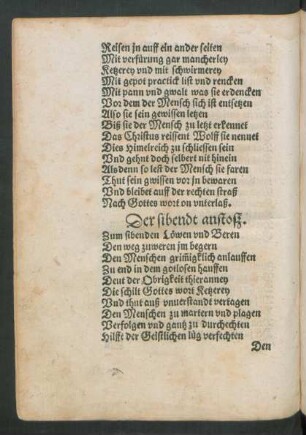 Reisen jn auff ein ander seiten
Mit verfürung gar mancherley
Ketzerey vnd mit schwirmerey
Mit gepot practick list vnd rencken
Mit pann vnd gwalt was sie erdencken
Vor dem der Mensch sich ist entsetzen
Also sie sein gewissen letzen
Biß sie der Mensch zu letzt erkennet
Das Christus reissent Wolff sie nennet
Dies Himelreich zu schliessen sein
Vnd gehnt doch selbert nit hinein
Als denn so lest der Mensch sie faren
Thut sein gwissen vor jn bewaren
Vnd bleibet auff der rechten straß
Nach Gottes wort on vnterlaß.
Der sibendt anstosz.
Zum sibenden Löwen vnd Beren
Den weg zuweren jm begern
Den Menschen grim̃igklich anlauffen
Zu end in dem gotlosen hauffen
Deut der Obrigkeit thieranney
Die schilt Gottes wort Ketzerey
Vnd thut auß vnuerstandt vertagen
Den Menschen zu martern vnd plagen
Verfolgen vnd gantz zu durchechten
Hilfft der Geistlichen lüg verfechten
Den